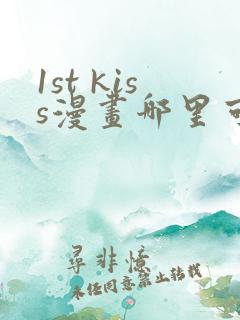 1st kis
s漫畫哪里可
尋非憶
未经同意禁止转载